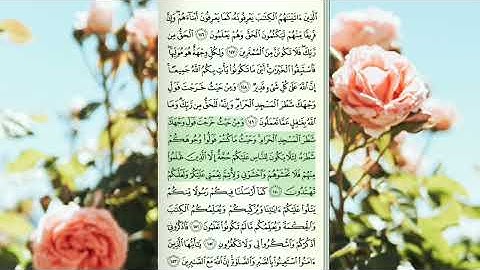 الَّذِينَ ءَاتَيْنَٰهُمُ الْكِتَٰبَ يَعْرِفُونَهُۥ كَمَا يَعْرِفُونَ أَبْنَآءَهُمْ ۖ وَإِنَّ
فَرِيقًا مِّنْهُمْ لَيَكْتُمُونَ الْحَقَّ وَهُمْ يَعْلَمُونَ ١٤٦ الْحَقُّ مِن
رَّبِّكَ ۖ فَلَا تَكُونَنَّ مِنَ الْمُمْتَرِينَ ١٤٧ وَلِكُلٍّ وِجْهَةٌ هُوَ مُوَلِّيهَا ۖ
فَاسْتَبِقُوا۟ الْخَيْرَٰتِ ۚ أَيْنَ مَا تَكُونُوا۟ يَأْتِ بِكُمُ اللَّهُ جَمِيعًا ۚ
إِنَّ اللَّهَ عَلَىٰ كُلِّ شَىْءٍ قَدِيرٌ ١٤٨ وَمِنْ حَيْثُ خَرَجْتَ فَوَلِّ
وَجْهَكَ شَطْرَ الْمَسْجِدِ الْحَرَامِ ۖ وَإِنَّهُۥ لَلْحَقُّ مِن رَّبِّكَ ۗ وَمَا
اللَّهُ بِغَٰفِلٍ عَمَّا تَعْمَلُونَ ١٤٩ وَمِنْ حَيْثُ خَرَجْتَ فَوَلِّ وَجْهَكَ
شَطْرَ الْمَسْجِدِ الْحَرَامِ ۚ وَحَيْثُ مَا كُنتُمْ فَوَلُّوا۟ وُجُوهَكُمْ
شَطْرَهُۥ لِئَلَّا يَكُونَ لِلنَّاسِ عَلَيْكُمْ حُجَّةٌ إِلَّا الَّذِينَ ظَلَمُوا۟
مِنْهُمْ فَلَا تَخْشَوْهُمْ وَاخْشَوْنِى وَلِأُتِمَّ نِعْمَتِى عَلَيْكُمْ وَلَعَلَّكُمْ
تَهْتَدُونَ ١٥٠ كَمَآ أَرْسَلْنَا فِيكُمْ رَسُولًا مِّنكُمْ
يَتْلُوا۟ عَلَيْكُمْ ءَايَٰتِنَا وَيُزَكِّيكُمْ وَيُعَلِّمُكُمُ الْكِتَٰبَ
وَالْحِكْمَةَ وَيُعَلِّمُكُم مَّا لَمْ تَكُونُوا۟ تَعْلَمُونَ ١٥١ فَاذْكُرُونِىٓ
أَذْكُرْكُمْ وَاشْكُرُوا۟ لِى وَلَا تَكْفُرُونِ ١٥٢ يَٰٓأَيُّهَا الَّذِينَ
ءَامَنُوا۟ اسْتَعِينُوا۟ بِالصَّبْرِ وَالصَّلَوٰةِ ۚ إِنَّ اللَّهَ مَعَ الصَّٰبِرِينَ ١٥٣